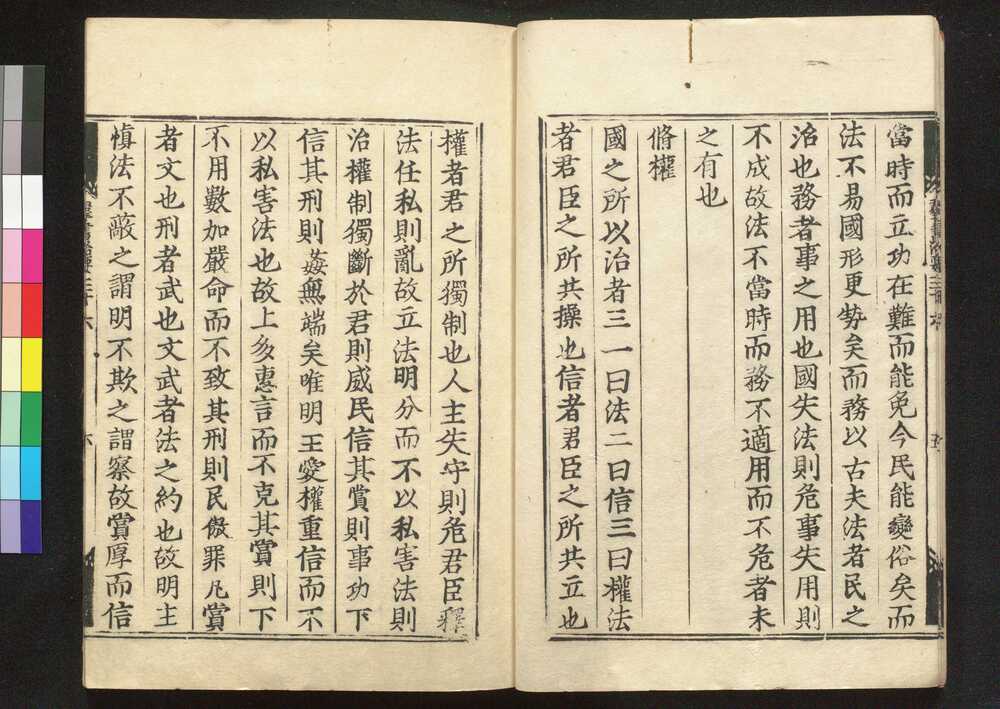 當時而立功在難而能免今民能變俗矣而
法不易國形更勢矣而務以古夫法者民之
治也務者事之用也國失法則危事失用則
不成故法不當時而務不適用而不危者未
之有也
脩權
國之所以治者三一曰法二曰信三曰權法
者君臣之所共操也信者君臣之所共立也
權者君之所獨制也人主失守則危君臣釋
法任私則亂故立法明分而不以私害法則
治權制獨斷於君則威民信其賞則事功下
信其刑則姦無端矣唯明王愛權重信而不
以私害法也故上多惠言而不克其賞則下
不用數加嚴命而不致其刑則民傲罪凡賞
者文也刑者武也文武者法之約也故明主
慎法不蔽之謂明不欺之謂察故賞厚而信
羣書治要三十六 六